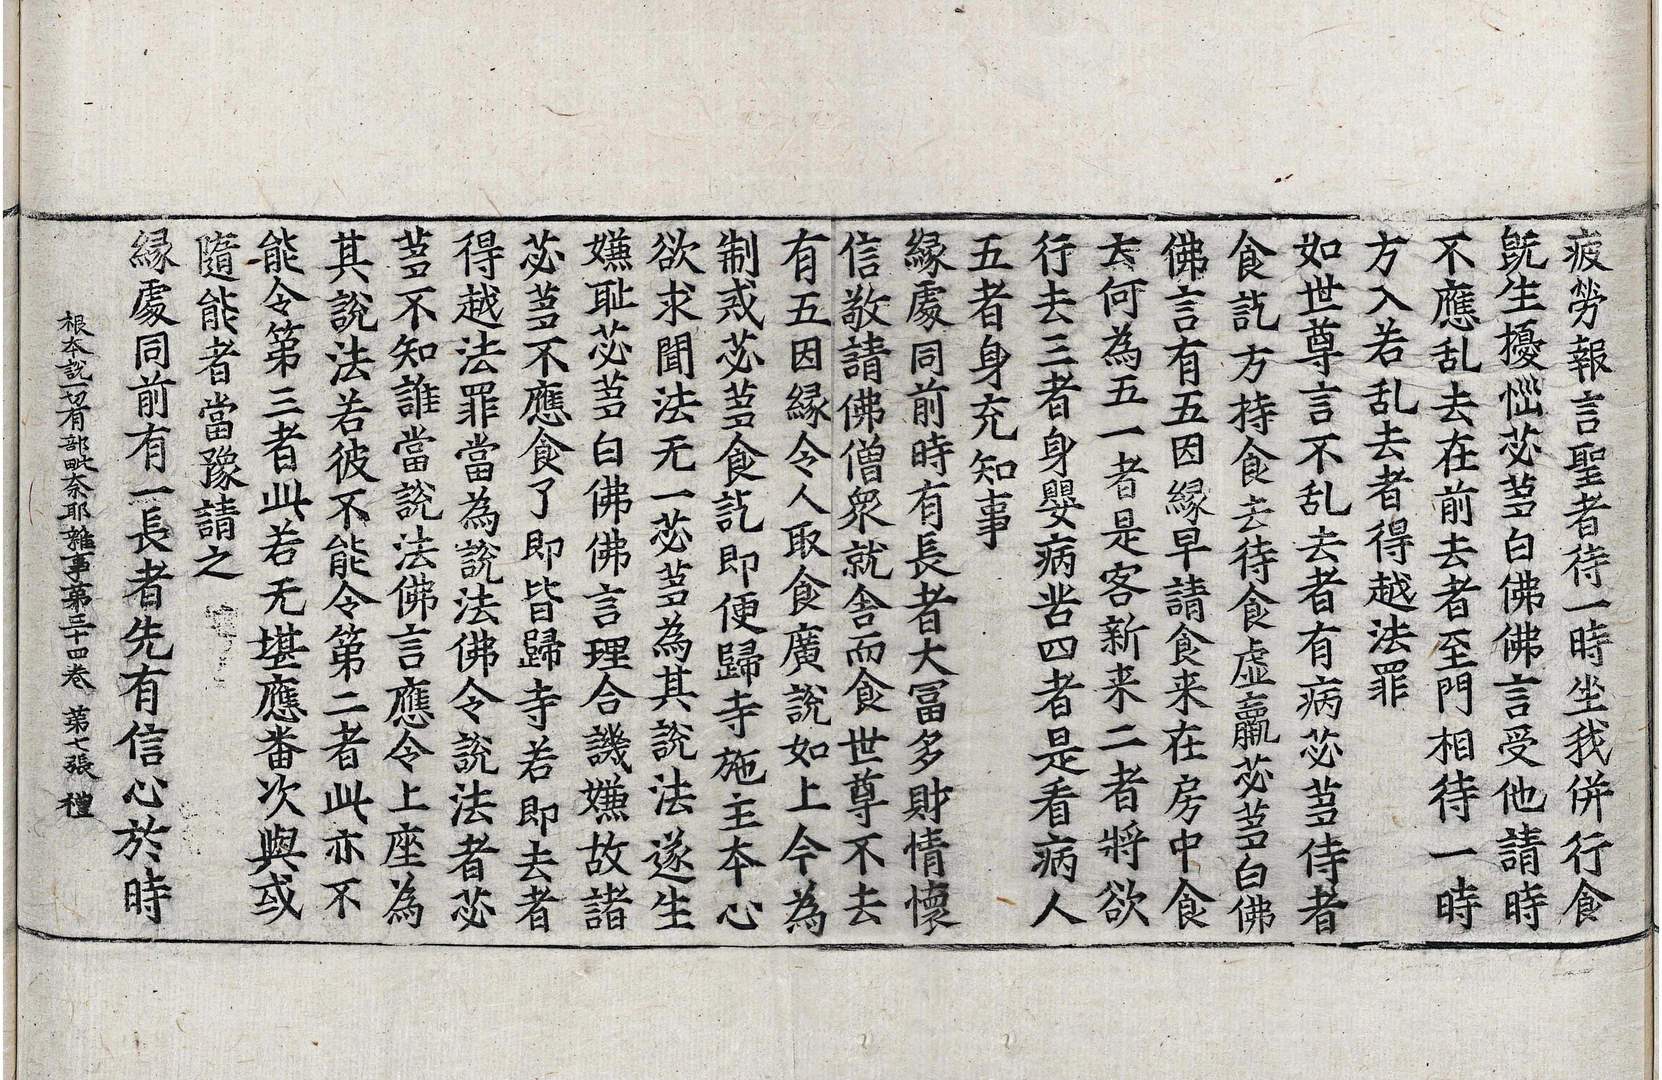 疲勞報言聖者待一時坐我併行食
旣生擾惱苾芻白佛佛言受他請時
不應乱去在前去者至門相待一時
方入若乱去者得越法罪
如世尊言不乱去者有病苾芻侍者
食訖方持食去待食虛羸苾芻白佛
佛言有五因緣早請食来在房中食
去何為五一者是客新来二者將欲
行去三者身嬰病苦四者是看病人
五者身充知事
緣處同前時有長者大冨多財情懷
信敬請佛僧衆就舎而食世尊不去
有五因緣令人取食廣說如上今為
制戒苾芻食訖即便歸寺施主本心
欲求聞法无一苾芻為其說法遂生
嫌耻苾芻白佛佛言理合譏嫌故諸
苾芻不應食了即皆歸寺若即去者
得越法罪當為說法佛令說法者苾
芻不知誰當說法佛言應令上座為
其說法若彼不能令第二者此亦不
能令第三者此若无堪應番次與或
隨能者當豫請之
緣處同前有一長者先有信心於時
根本說一切有部毗奈耶雜事第三十四卷 第七張 禮